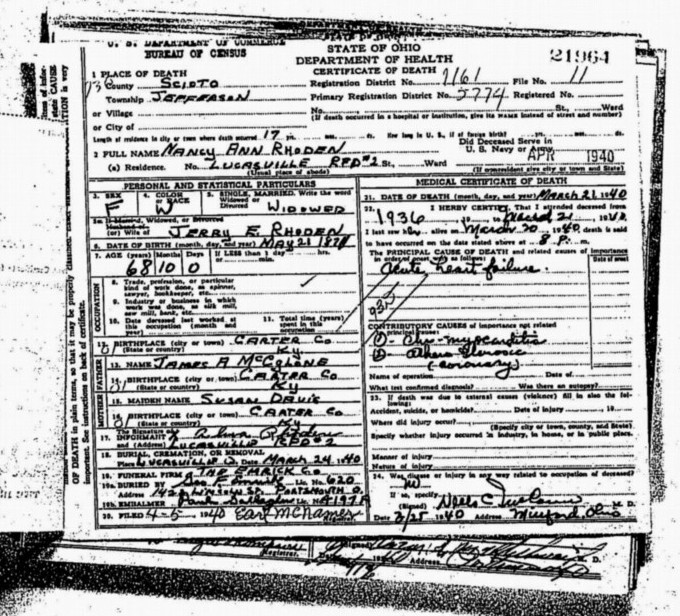 U. S. DEPARTMENT OF COMMERCE
BUREAU OF CENSUS
STATE OF OHIO
DEPARTMENT OF HEALTH
CERTIFICATE OF DEATH
21964
1 PLACE OF DEATH
County SCIOTO
Registration District No. 1161 File No. 11
Township JEFFERSON
Primary Registration District No. Registered No.
or Village
No. St., Ward
(If death occurred in a hospital or institution, give its NAME instead of street and number)
or City of
Length of residence in city or town where death occurred 17 yrs. mos. ds. How long in U. S., if of foreign birth? yrs. mos. ds.
2 FULL NAME NANCY ANN RHODEN
Did Deceased Serve in
U. S. Navy or Army
APR 1940
(a) Residence. No. LUCASVILLE RFD#2 St., Ward
(Usual place of abode) (If nonresident give city or town and State)
PERSONAL AND STATISTICAL PARTICULARS
3. SEX F
4. COLOR or RACE W
5. SINGLE, MARRIED, Write the word
Widowed or Divorced WIDOWED
5a. If Married, Widowed, or Divorced
Husband of
(or) Wife of JERRY E. RHODEN
6. DATE OF BIRTH (month, day, and year) MAY 21
7. AGE (years) Months Days If LESS than 1 day
68 10 0 or min.
OCCUPATION
8. Trade, profession, or particular
kind of work done, as spinner,
sawyer, bookkeeper, etc.
9. Industry or business in which
work was done, as silk mill,
saw mill, bank, etc.
10. Date deceased last worked at
this occupation (month and
year)
11. Total time (years)
spent in this
occupation
12. BIRTHPLACE (city or town) CARTER CO
(State or country) KY.
FATHER
13. NAME JAMES A McGLONE
14. BIRTHPLACE (city or town) CARTER CO
(State or country) KY
MOTHER
15. MAIDEN NAME SUSAN DAVIS
16. BIRTHPLACE (city or town) CARTER CO
(State or country) KY
17. The Signature of
INFORMANT
and (Address) LUCASVILLE RFD#2
18. BURIAL, CREMATION, OR REMOVAL
Place LUCASVILLE O. Date MARCH 24, 1940
19. FUNERAL FIRM THE EMRICK CO
19a. BURIED BY Lic. No. 620
Address PORTSMOUTH O.
19b. EMBALMER Lic. No.
20. FILED 4-5 1940 Earl McNamer
Registrar.
MEDICAL CERTIFICATE OF DEATH
21. DATE OF DEATH (month, day, and year) MARCH 21, 1940
22. I HERBY CERTIFY, That I attended deceased from
1936 to March 21 1940
I last saw her alive on March 20 1940, death is said
to have occurred on the date stated above at 8 P. m.
THE PRINCIPAL CAUSE OF DEATH and related causes of importance
in order of onset as follows: Date of onset
Acute heart failure.
CONTRIBUTORY CAUSES of importance not related
to principal cause:
myocarditis
(coronary)
Name of operation Date of
What test confirmed diagnosis? Was there an autopsy?
23. If death was due to external causes (violence) fill in also the following:
Accident, suicide, or homicide? Date of injury 19
Where did injury occur?
(Specify city or town, county, and State)
Specify whether injury occurred in industry, in home, or in public place.
Manner of injury
Nature of injury
24. Was disease or injury in any way related to occupation of deceased?
If so, specify
(Signed) M. D.
Date 3/25 1940 Address Minford, Ohio
OF DEATH in plain terms, so that it may be properly classified.
important. See instructions on back of certificate.
Registrar.